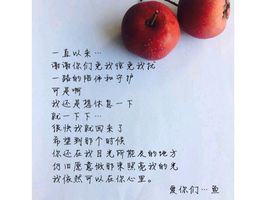 一直以来…
谢谢你们免我惊免我扰
一路的陪伴和守护
可是啊
我还是想休息一下
就一下下…
很快我就回来了
希望到那个时候
你还在我目光所能及的地方
仍旧愿意做那束照亮我的光
我依然可以在你心里。
爱你们…鱼